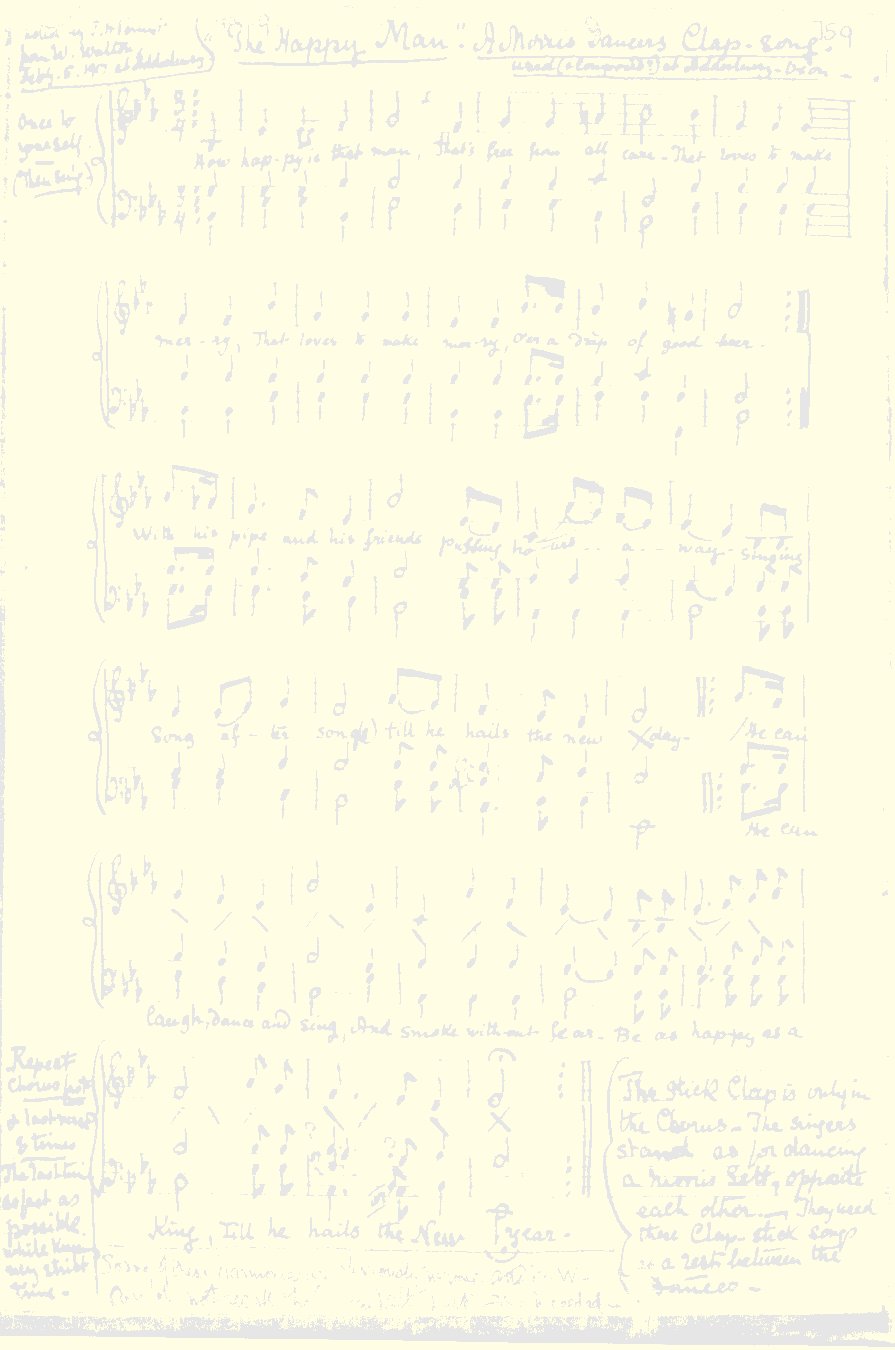 "The Happy Man". A Morris Dancers Clap-Song. 159
noted by
from W. Walton
at Adderbury
used (& composed?) at Adderbury - Oxon -
Once to
yourself
(Then Sing)
How hap-py is that man, that's free from all care - That loves to make
mer-ry, That loves to make mer-ry, O'er a drip of good beer.
With his pipe and his friends puffing ho-urs .. a .. way - singing
Song af-ter song till he hails the new day - He can
He can
laugh, dance and sing, And smoke with-out fear - Be as happy as a
King, Till he hails the New year.
Repeat
Chorus
at last verse
3 times
The last time
as fast as
possible
while
very strict
Time -
The Stick Clap is only in
the Chorus - The singers
stand as for dancing
a Morris Sett, opposite
each other - They used
these Clap-stick songs
as a rest between the
Dances -